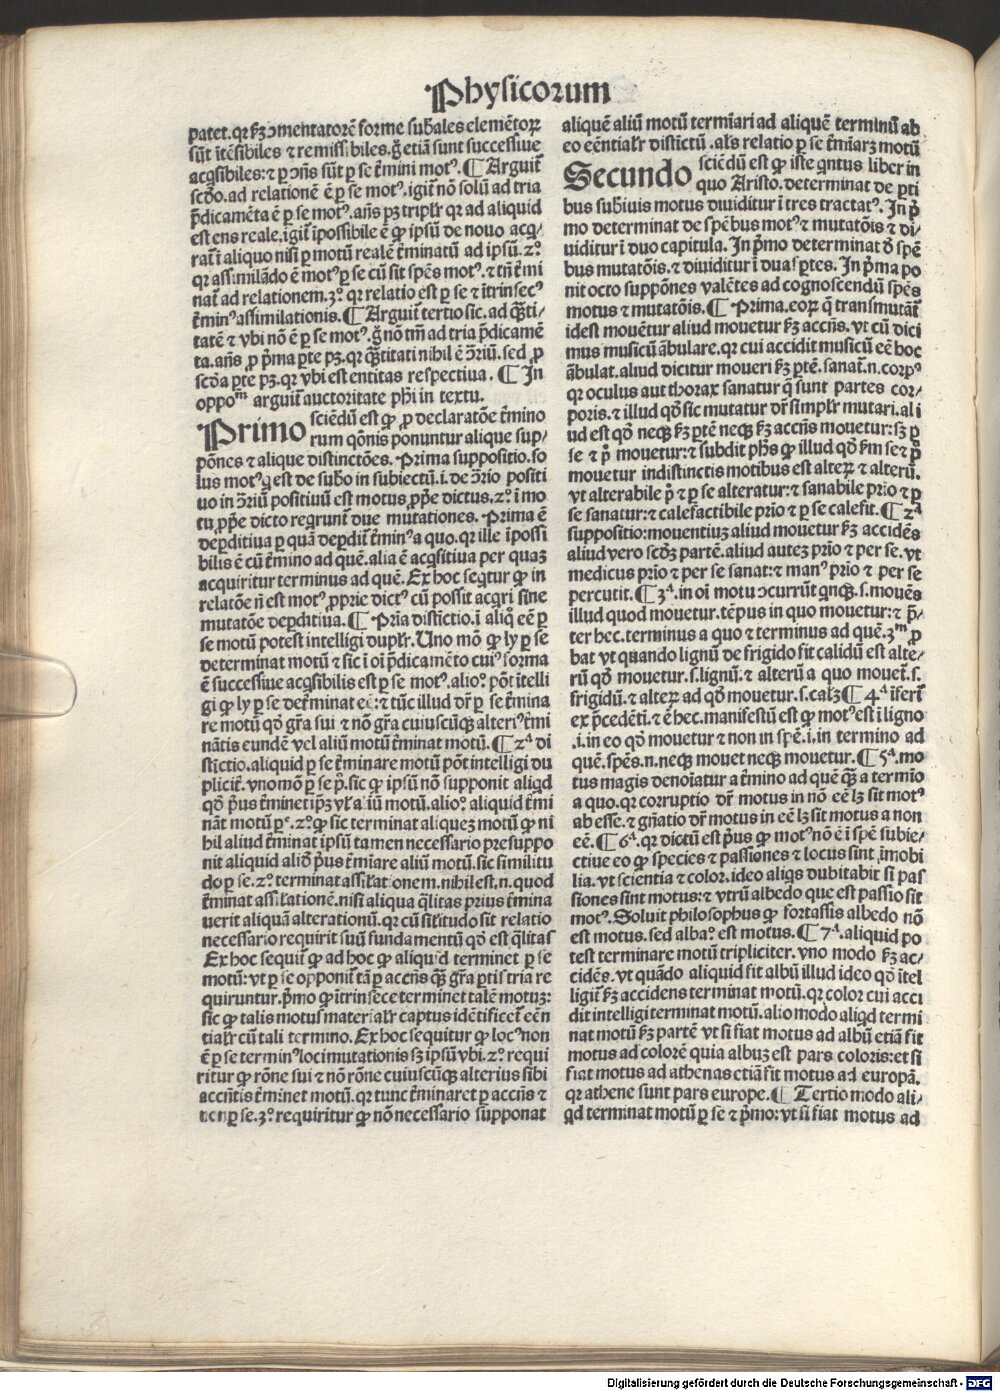 Physicorum
patet. qꝛ ẜm ꝯmentatorē forme sub̄ales elemētoꝝ
sūt ītēsibiles ⁊ remissibiles. g̊ etiā sunt successiue
acq̄sibiles: ⁊ ꝑ ꝯn̄s sūt ꝑ se t̄mini motꝰ. ¶ Arguit̄
scd̓o. ad relationē ē ꝑ se motꝰ. igit̄ nō solū ad tria
p̄dicamēta ē ꝑ se motꝰ. an̄s pꝫ tripl̓r qꝛ ad aliquid
est ens reale. igit̄ īpossibile ē ꝙ ipsū de nouo acq̄/
rat̄ ī aliquo nisi ꝑ motū realē t̄minatū ad ipsū. 2ͦ.
qꝛ assimilādo ē motꝰ ꝑ se cū sit spēs motꝰ. ⁊ tn̄ t̄mi
nat̄ ad relationem. 3ͦ. qꝛ relatio est ꝑ se ⁊ ītrinsecꝰ
t̄minꝰ assimilationis. ¶ Arguit̄ tertio sic. ad q̄ti/
tatē ⁊ vbi nō ē ꝑ se motꝰ. g̊ nō tm̄ ad tria p̄dicamē
ta. an̄s ꝓ p̄ma ꝑte pꝫ. qꝛ q̄titati nihil ē ꝯ̄riū. sed ꝓ
scd̓a ꝑte pꝫ. qꝛ vbi est entitas respectiua. ¶ In
oppoᵐ arguit̄ auctoritate ph̓i in textu.
Primo sciēdū est ꝙ ꝓ declaratōe t̄mino
rum qōnis ponuntur alique sup/
pōnes ⁊ alique distinctōes. Prima suppositio. so
lus motꝰ q̇ est de sub̄o in subiectū. i. de ꝯ̄rio positi
uo in ꝯ̄riū positiuū est motus ꝓp̓e dictus. 2ͦ. ī mo
tu ꝓp̓e dicto reqrunt̄ due mutationes. Prima ē
deꝑditiua ꝑ quā deꝑdit̄ t̄minꝰ a quo. qꝛ ille īpossi
bilis ē cū t̄mino ad quē. alia ē acq̄sitiua per quaꝫ
acquiritur terminus ad quē. Ex hoc seqtur ꝙ in
relatōe n̄ est motꝰ ꝓprie dictꝰ cū possit acqri sine
mutatōe deꝑditiua. ¶ Pr̄ia distīctio. ī aliq̊ eē ꝑ
se motū potest intelligi dupl̓r. Uno mō ꝙ ly ꝑ se
determinat motū ⁊ sic ī oī p̄dicamēto cuiꝰ forma
ē successiue acq̄sibilis est ꝑ se motꝰ. alioͦ. pōt ītelli
gi ꝙ ly ꝑ se det̄minat eē: ⁊ tūc illud dr̄ ꝑ se t̄mina
re motū qd̓ gr̄a sui ⁊ nō gr̄a cuiuscūqꝫ alteriꝰ t̄mi
nātis eundē vel aliū motū t̄minat motū. ¶ 2ᵃ di
stīctio. aliquid ꝑ se t̄minare motū pōt intelligi du
plicit̄. vno mō ꝑ se p̊. sic ꝙ ipsū nō supponit aliqd
qd̓ p̄us t̄minet ipꝫ vl̓ aliū motū. alioͦ. aliquid t̄mi
nāt motū ꝑᶜ. 2ͦ. ꝙ sic terminat aliqueꝫ motū ꝙ ni
hil aliud t̄minat ipsū tamen necessario presuppo
nit aliquid alid̓ p̄us t̄mīare aliū motū. sic similitu
do ꝑ se. 2ͦ. terminat assil̓ationem. nihil est. n. quod
t̄minat assil̓ationē. nisi aliqua q̄litas prius t̄mina
uerit aliquā alterationū. qꝛ cū sil̓itudo sit relatio
necessario requirit suū fundamentū qd̓ est q̄litas
Ex hoc sequit̄ ꝙ ad hoc ꝙ aliquid terminet ꝑ se
motū: vt ꝑ se opponit̄ tā ꝑ accn̄s q̄ꝫ gr̄a ꝑtis tria re
quiruntur. p̄mo ꝙ ītrinsece terminet talē motuꝫ:
sic ꝙ talis motus material̓r captus idētificet̄ eēn
tial̓r cū tali termino. Ex hoc sequitur ꝙ locꝰ non
ē ꝑ se terminꝰ loci mutationis sꝫ ipsū vbi. 2ͦ. requi
ritur ꝙ rōne sui ⁊ nō rōne cuiuscūqꝫ alterius sibi
accn̄tis t̄minet motū. qꝛ tunc t̄minaret ꝑ accn̄s ⁊
non ꝑ se. 3ͦ. requiritur ꝙ nō necessario supponat
aliquē aliū motū termīari ad aliquē terminū ab
eo eēntial̓r distīctū. al̓s relatio ꝑ se t̄mīarꝫ motū
Secundo sciēdū est ꝙ iste qntus liber in
quo Aristo. determinat de ꝑti
bus sub̄iuis motus diuiditur ī tres tractatꝰ. In p̊
mo determinat de spēbus motꝰ ⁊ mutatōis ⁊ di/
uiditur ī duo capitula. In p̄mo determinat d̓ spē
bus mutatōis. ⁊ diuiditur ī duas ꝑtes. In p̄ma po
nit octo suppōnes valētes ad cognoscendū spēs
motus ⁊ mutatōis. ¶ Prima. eoꝝ q̄ transmutāt̄
idest mouētur aliud mouetur ẜm accn̄s. vt cū dici
mus musicū ābulare. qꝛ cui accidit musicū eē hoc
ābulat. aliud dicitur moueri ẜm ꝑtē. sanat̄. n. corpꝰ
qꝛ oculus aut thorax sanatur q̄ sunt partes cor/
poris. ⁊ illud qd̓ sic mutatur dr̄ simpl̓r mutari. al i
ud est qd̓ neqꝫ ẜm ꝑtē neqꝫ ẜm accn̄s mouetur: sꝫ ꝑ
se ⁊ p̊ mouetur: ⁊ subdit ph̓s ꝙ illud qd̓ ẜm se ⁊ p̊
mouetur indistinctis motibus est alteꝝ ⁊ alterū.
vt alterabile p̊ ⁊ ꝑ se alteratur: ⁊ sanabile prīo ⁊ ꝑ
se sanatur: ⁊ calefactibile prīo ⁊ ꝑ se calefit. ¶ 2ᵃ
suppositio: mouentiuꝫ aliud mouetur ẜm accidēs
aliud vero scd̓ꝫ partē. aliud auteꝫ prīo ⁊ per se. vt
medicus prīo ⁊ per se sanat: ⁊ manꝰ prīo ⁊ per se
percutit. ¶ 3ᵃ. in oī motu ꝯcurrūt qnqꝫ. s. mouēs
illud quod mouetur. tēpus in quo mouetur: ⁊ p̄/
ter hec. terminus a quo ⁊ terminus ad quē. 3ᵐ ꝓ
bat vt quando lignū de frigido fit calidū est alte/
rū qd̓ mouetur. s. lignū: ⁊ alterū a quo mouet̄. s.
frigidū. ⁊ alteꝝ ad qd̓ mouetur. s. calꝫ ¶ 4ᵃ īfert̄
ex p̄cedēti. ⁊ ē hec. manifestū est ꝙ motꝰ est ī ligno
. i. in eo qd̓ mouetur ⁊ non in spē. i. in termino ad
quē. spēs. n. neqꝫ mouet neqꝫ mouetur. ¶ 5ᵃ. mo
tus magis denoīatur a t̄mino ad quē q̄ꝫ a termīo
a quo. qꝛ corruptio dr̄ motus in nō eē lꝫ sit motꝰ
ab esse. ⁊ gn̄atio dr̄ motus in eē lꝫ sit motus a non
eē. ¶ 6ᵃ. qꝛ dictū est p̄us ꝙ motꝰ nō ē ī spē subie/
ctiue eo ꝙ species ⁊ passiones ⁊ locus sint īmobi
lia. vt scientia ⁊ color. ideo aliqs dubitabit si pas
siones sint motus: ⁊ vtrū albedo que est passio sit
motꝰ. Soluit philosophus ꝙ fortassis albedo nō
est motus. sed albaͦ. est motus. ¶ 7ᵃ. aliquid po
test terminare motū tripliciter. vno modo ẜm ac/
cidēs. vt quādo aliquid fit albū illud ideo qd̓ ītel
ligit̄ ẜm accidens terminat motū. qꝛ color cui acci
dit intelligi terminat motū. alio modo aliqd termi
nat motū ẜm partē vt si fiat motus ad albū etiā fit
motus ad colorē quia albuꝫ est pars coloris: et si
fiat motus ad athenas etiā fit motus ad europā.
qꝛ athene sunt pars europe. ¶ Tertio modo ali/
qd terminat motū ꝑ se ⁊ p̄mo: vt si fiat motus ad
Digitalisierung gefördert durch die Deutsche Forschungsgemeinschaft - DFG